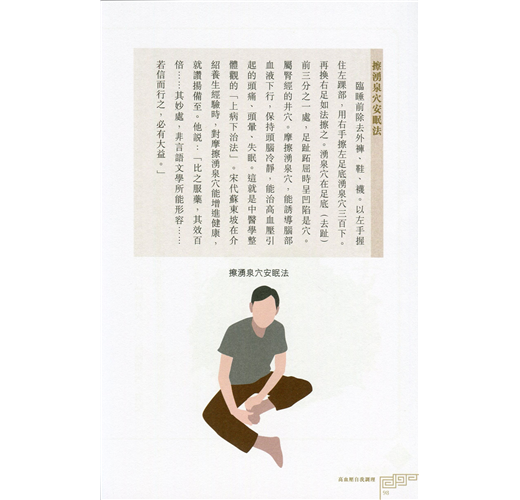 擦湧泉穴安眠法
臨睡前除去外褲、鞋、襪。以左手握
住左踝部，用右手擦左足底湧泉穴三百下。
再換右足如法擦之。湧泉穴在足底（去趾）
前三分之一處，足趾跖屈時呈凹陷是穴。
屬腎經的井穴。摩擦湧泉穴，能誘導腦部
血液下行，保持頭腦冷靜，能治高血壓引
起的頭痛、頭暈、失眠。這就是中醫學整
體觀的「上病下治法」。宋代蘇東坡在介
紹養生經驗時，對摩擦湧泉穴能增進健康，
就讚揚備至。他說：「比之服藥，其效百
倍……其妙處，非言語文學所能形容……
若信而行之，必有大益。」
擦湧泉穴安眠法
高血壓自我調理
98